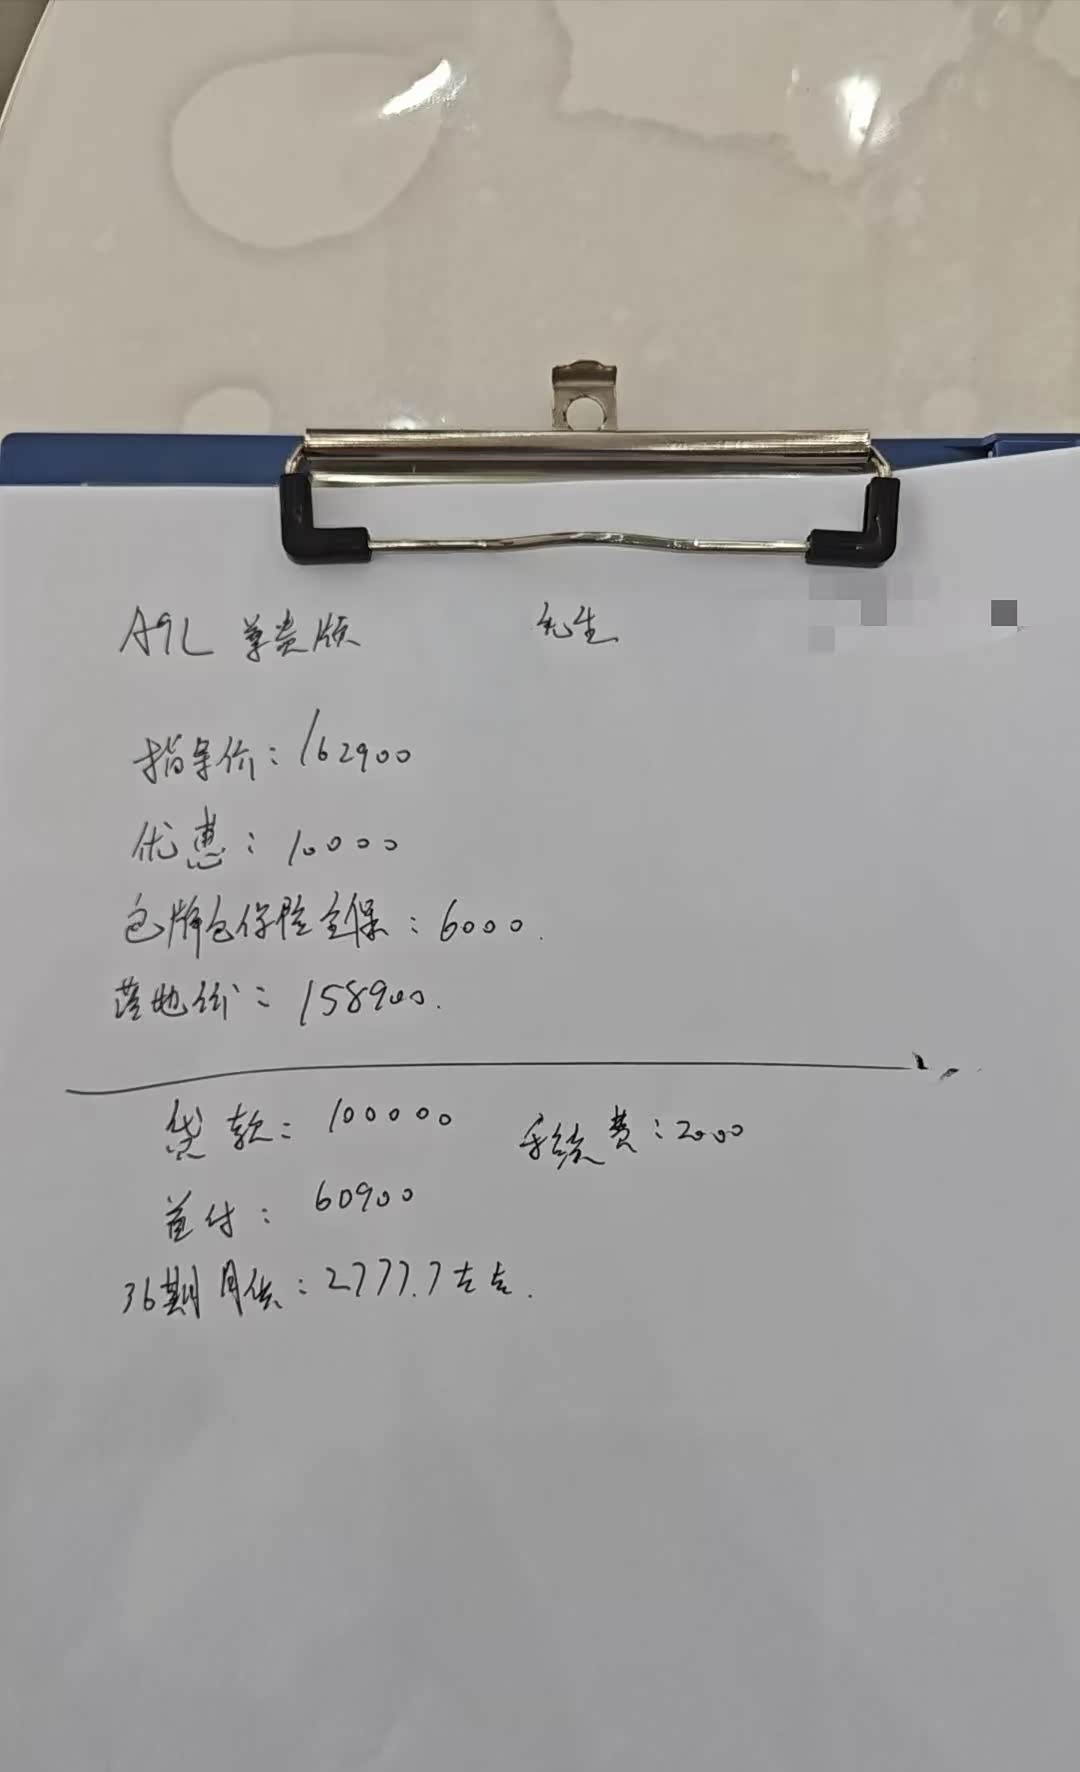 A9L 尊贵版 先生
指导价：162900
优惠：10000
包牌包保险全保：6000.
落地价：158900.
贷款：100000 手续费：2000
首付：60900
36期月供：2777.7左右.